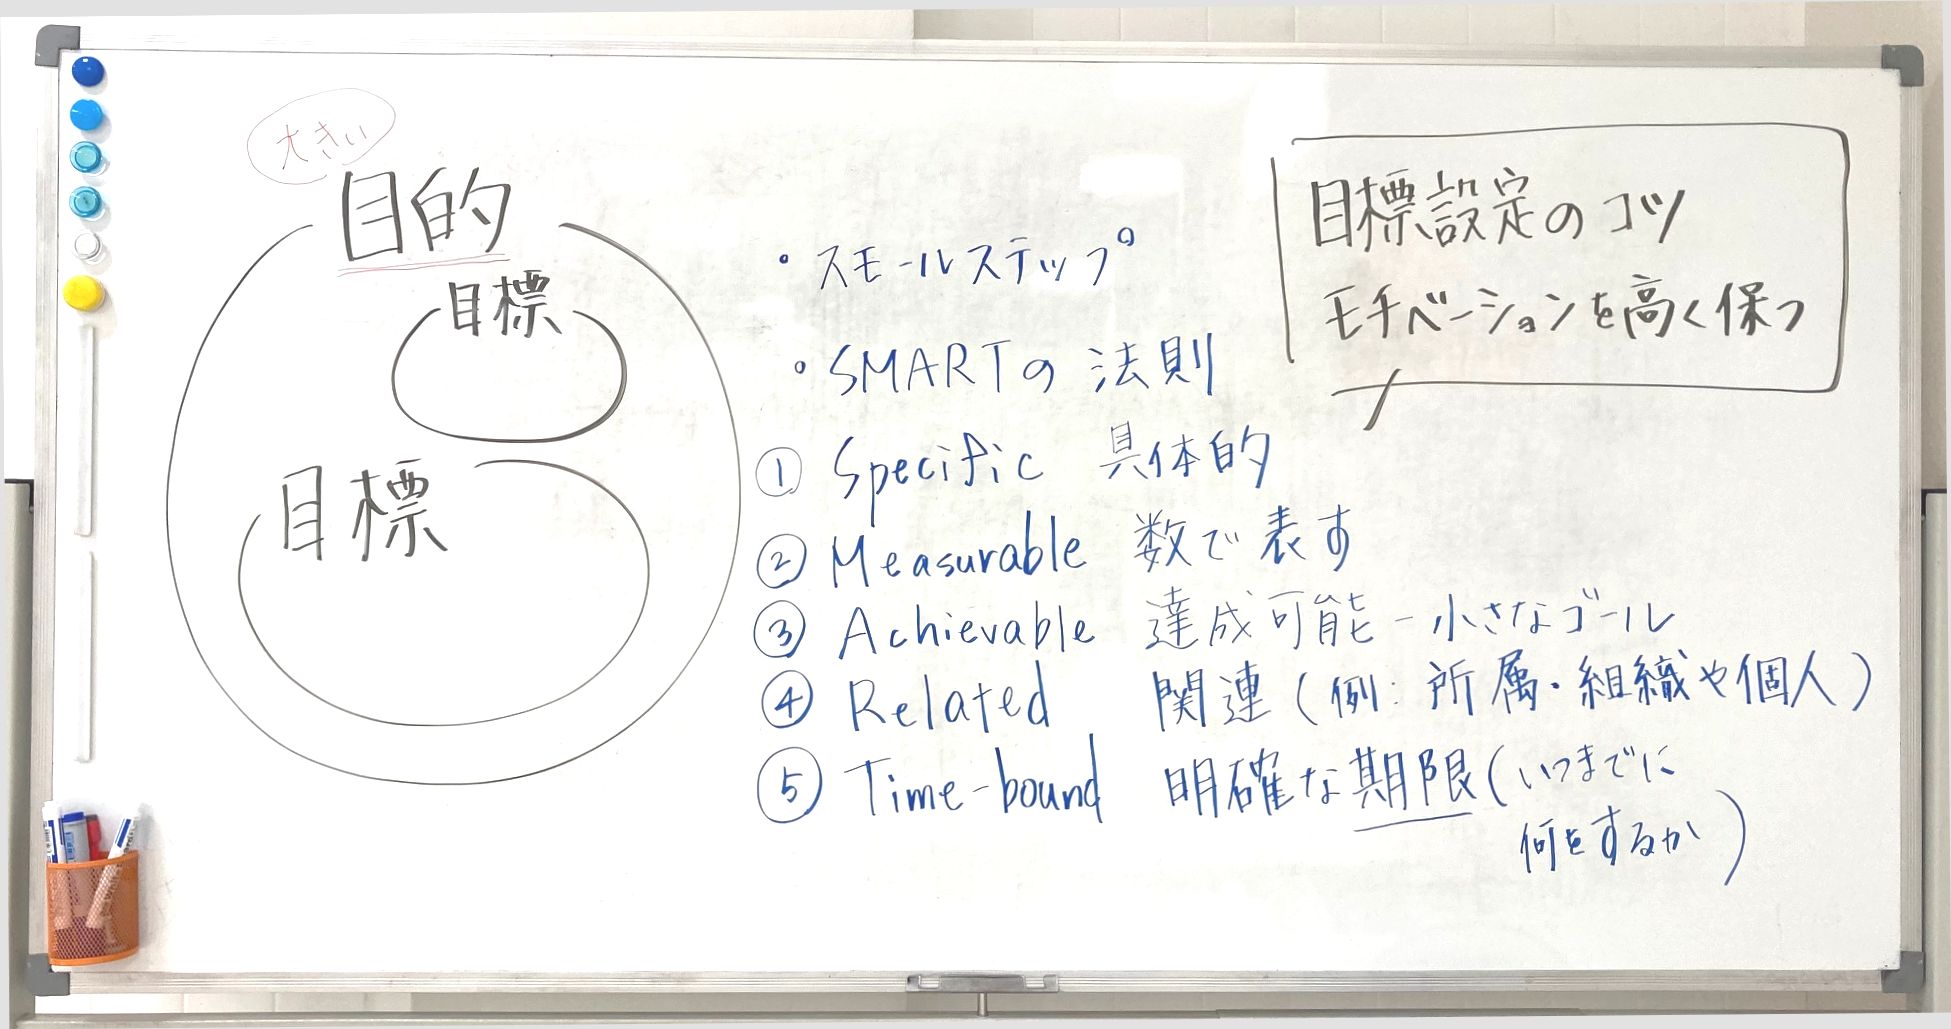 大きい
目的
目標
目標
・スモールステップ
・SMARTの法則
① Specific 具体的
② Measurable 数で表す
③ Achievable 達成可能-小さなゴール
④ Related 関連(例:所属・組織や個人)
⑤ Time-bound 明確な期限(いつまでに
何をするか)
目標設定のコツ
モチベーションを高く保つ